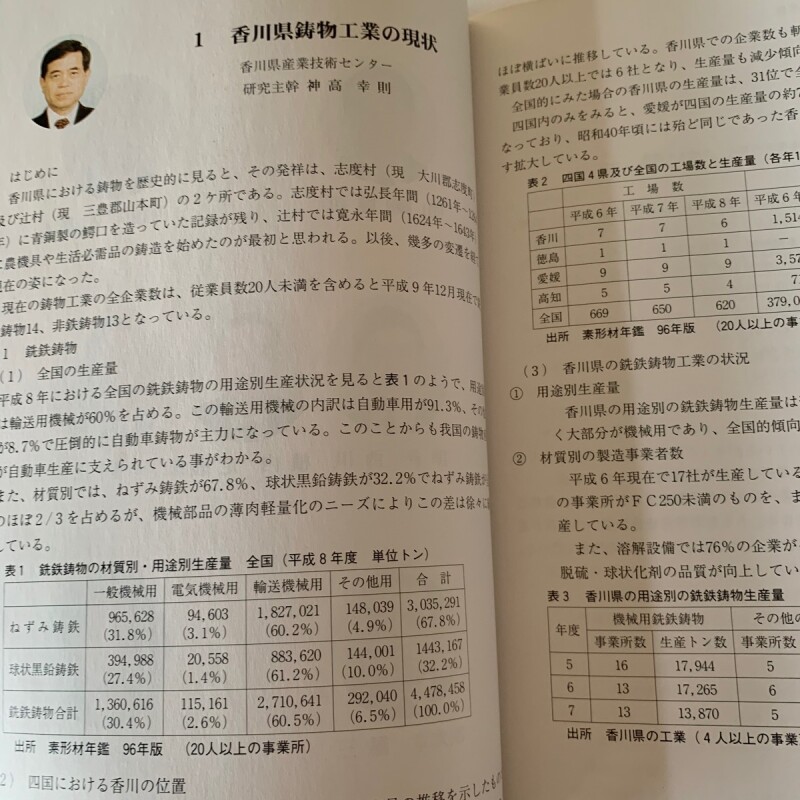 1 香川県鋳物工業の現状
香川県産業技術センター
研究主幹 神高 幸則
はじめに
香川県における鋳物を歴史的に見ると、その発祥は、志度村(現 大川郡志度町
及び辻村(現 三豊郡山本町)の2ヶ所である。志度村では弘長年間(1261年~
年)に青銅製の鰐口を造っていた記録が残り、辻村では寛永年間(1624年~1643年
に農機具や生活必需品の鋳造を始めたのが最初と思われる。以後、幾多の変遷を経
現在の姿になった。
現在の鋳物工業の全企業数は、従業員数20人未満を含めると平成9年12月現在で
鋳物14、非鉄鋳物13となっている。
1 銑鉄鋳物
(1) 全国の生産量
平成8年における全国の銑鉄鋳物の用途別生産状況を見ると表1のようで、用途
は輸送用機械が60%を占める。この輸送用機械の内訳は自動車用が91.3%、その
が8.7%で圧倒的に自動車鋳物が主力になっている。このことからも我国の鋳物
が自動車生産に支えられている事がわかる。
また、材質別では、ねずみ鋳鉄が67.8%、球状黒鉛鋳鉄が32.2%でねずみ鋳鉄が
のほぼ2/3を占めるが、機械部品の薄肉軽量化のニーズによりこの差は徐々に
している。
表1 銑鉄鋳物の材質別・用途別生産量 全国(平成8年度 単位トン)
一般機械用 電気機械用 輸送機械用 その他用 合計
ねずみ鋳鉄 965,628 94,603 1,827,021 148,039 3,035,291
(31.8%) (3.1%) (60.2%) (4.9%) (67.8%)
球状黒鉛鋳鉄 394,988 20,558 883,620 144,001 1443,167
(27.4%) (1.4%) (61.2%) (10.0%) (32.2%)
銑鉄鋳物合計 1,360,616 115,161 2,710,641 292,040 4,478,458
(30.4%) (2.6%) (60.5%) (6.5%) (100.0%)
出所 素形材年鑑 96年版 (20人以上の事業所)
2) 四国における香川の位置
の推移を示したもの
ほぼ横ばいに推移している。香川県での企業数も
業員数20人以上では6社となり、生産量も減少傾向
全国的にみた場合の香川県の生産量は、31位で全
四国内のみをみると、愛媛が四国の生産量の約7
なっており、昭和40年頃には殆ど同じであった香
す拡大している。
表2 四国4県及び全国の工場数と生産量(各年1
工場数
平成6年 平成7年 平成8年 平成6年
香川 7 7 6 1,514
徳島 1 1 1 −
愛媛 9 9 9 3,57
高知 5 5 4 7
全国 669 650 620 379,0
出所 素形材年鑑 96年版 (20人以上の事業
(3) 香川県の銑鉄鋳物工業の状況
① 用途別生産量
香川県の用途別の銑鉄鋳物生産量は
く大部分が機械用であり、全国的傾向
② 材質別の製造事業者数
平成6年現在で17社が生産している
の事業所がFC250未満のものを、ま
産している。
また、溶解設備では76%の企業が
脱硫・球状化剤の品質が向上してい
表3 香川県の用途別の銑鉄鋳物生産量
年度 機械用銑鉄鋳物 その他の
事業所数 生産トン数 事業所数
5 16 17,944 5
6 13 17,265 6
7 13 13,870 5
出所 香川県の工業(4人以上の事業